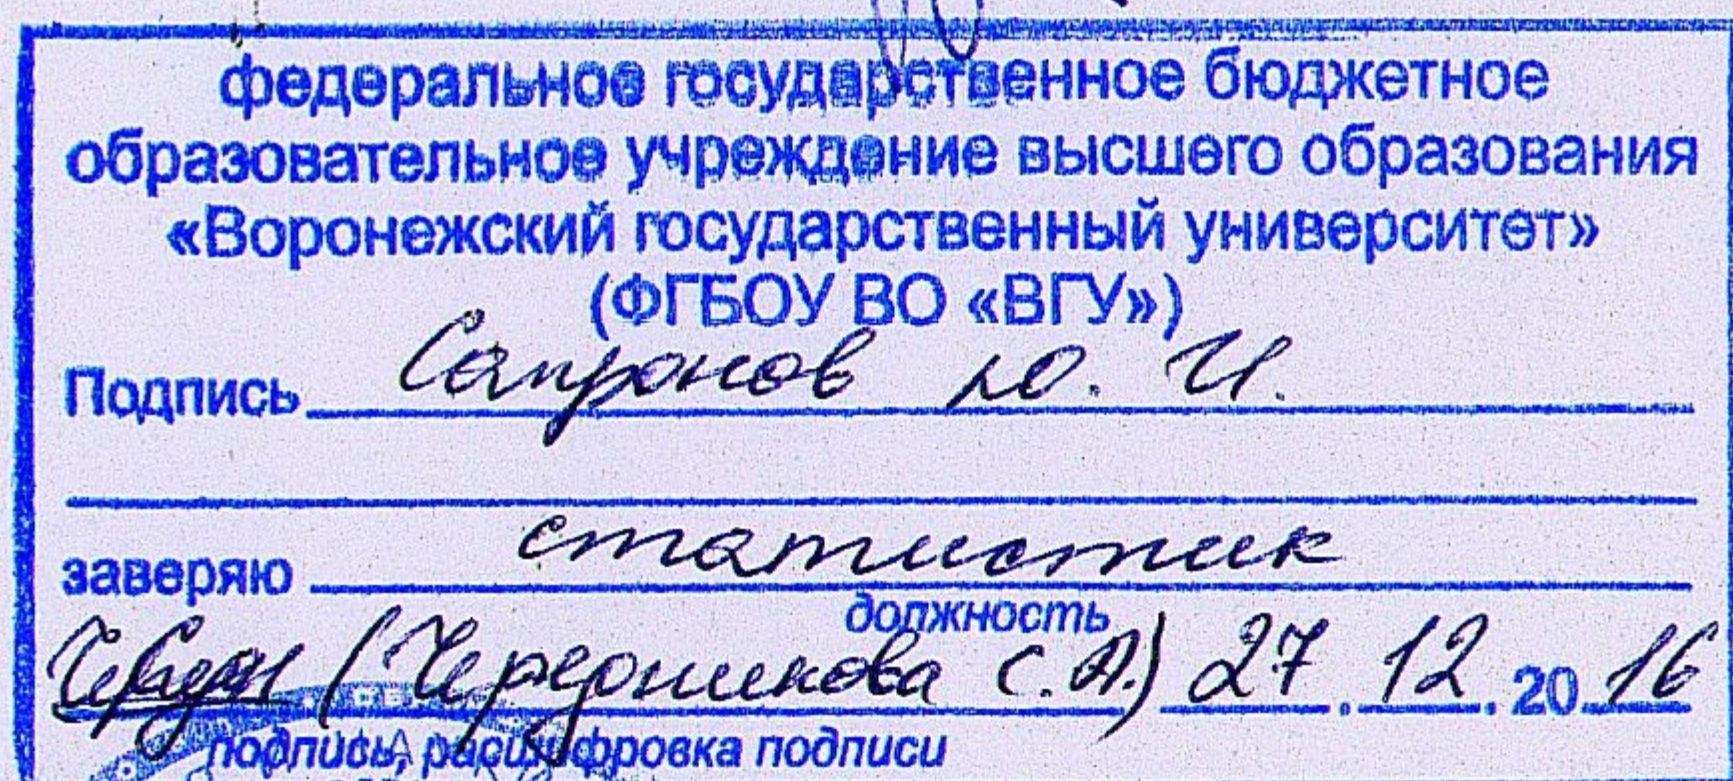 федеральное государственное бюджетное
образовательное учреждение высшего образования
«Воронежский государственный университет»
(ФГБОУ ВО «ВГУ»)
Подпись Сапронов Ю. И.
заверяю статистик
должность
(Чередникова С.А.) 27.12.2016
подпись, расшифровка подписи